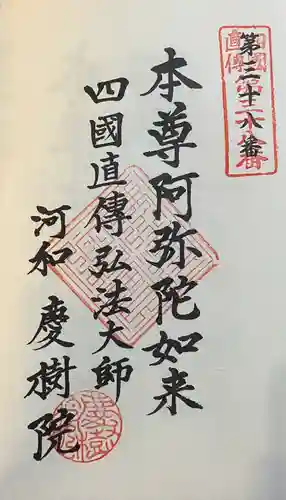 第三十八番
本尊阿弥陀如来
四國直傳弘法大師
河和 慶樹院
四國直傳